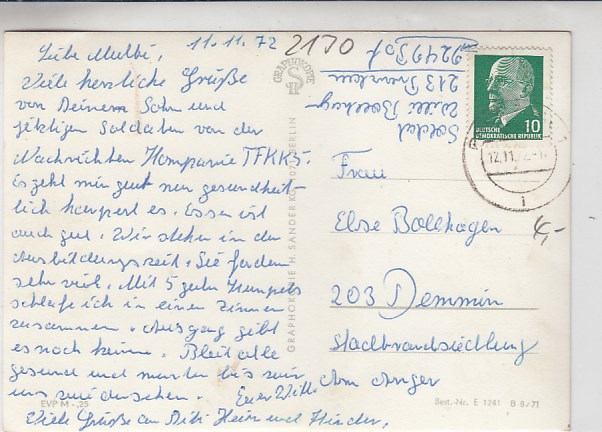 11.11.72
2130
Liebe Mutti,
Viele herzliche Grüße
von Deinem Sohn und
jetzigen Soldaten von der
Nachrichten Kompanie TFKK5.
Es geht mir gut nur gesundheit-
lich hapert es. Essen ist
auch gut. Wir stehen in der
Ausbildungszeit. Sie fordern
sehr viel. Mit 5 guten Kumpels
schlafe ich in einen Zimmer
zusammen. Ausgang gibt
es noch keinen. Bleibt alle
gesund und munter bis wir
uns wiedersehen. Euer Willi
Viele Grüße an Heini und Kinder,
Soldat
Willi Bollhagen
213 Prenzlau
9249 Postf
GRAPHOKOPIE
DEUTSCHE
DEMOKRATISCHE REPUBLIK
10
12.11.72
i
Frau
Else Bollhagen
203 Demmin
Stadtrandsiedlung
Am Anger
4,-
GRAPHOKOPIE H. SANDER KG BERLIN
EVP M -,25
Best.-Nr. E 1241 B 8/71